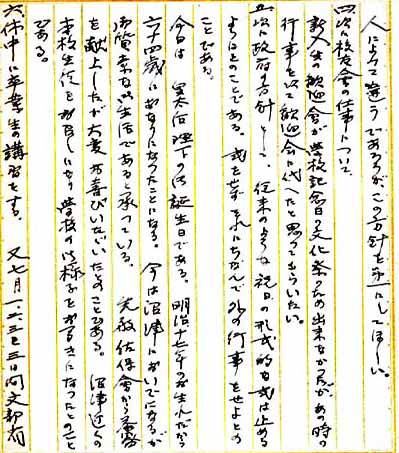 人によって違うであろうが、この方針を第一にしてほしい。
四、次に校友会の仕事について
新入生の歓迎会が学校記念日の文化祭のため出来なかったが、あの時の
行事を以て歓迎会に代へたと思ってもらいたい。
五、次に政府の方針として、従来のような祝日の形式的な式は止める
ようにとのことである。式をせずそれにちなんで外の行事をせよとの
ことである。
今日は 皇太后陛下の御誕生日である。明治十七年のお生れだから
六十四歳におなりになったことになる。今は沼津においでになるが
御質素な御生活であると承っている。先般佐保会から
を献上したが大変お喜びいただいたとのことである。沼津近くの
本校生徒をお召しになり学校の御様子をお聞きになったとのこと
である。
六、休中に卒業生の講習をする。 又七月一、二、三と三日間文部省